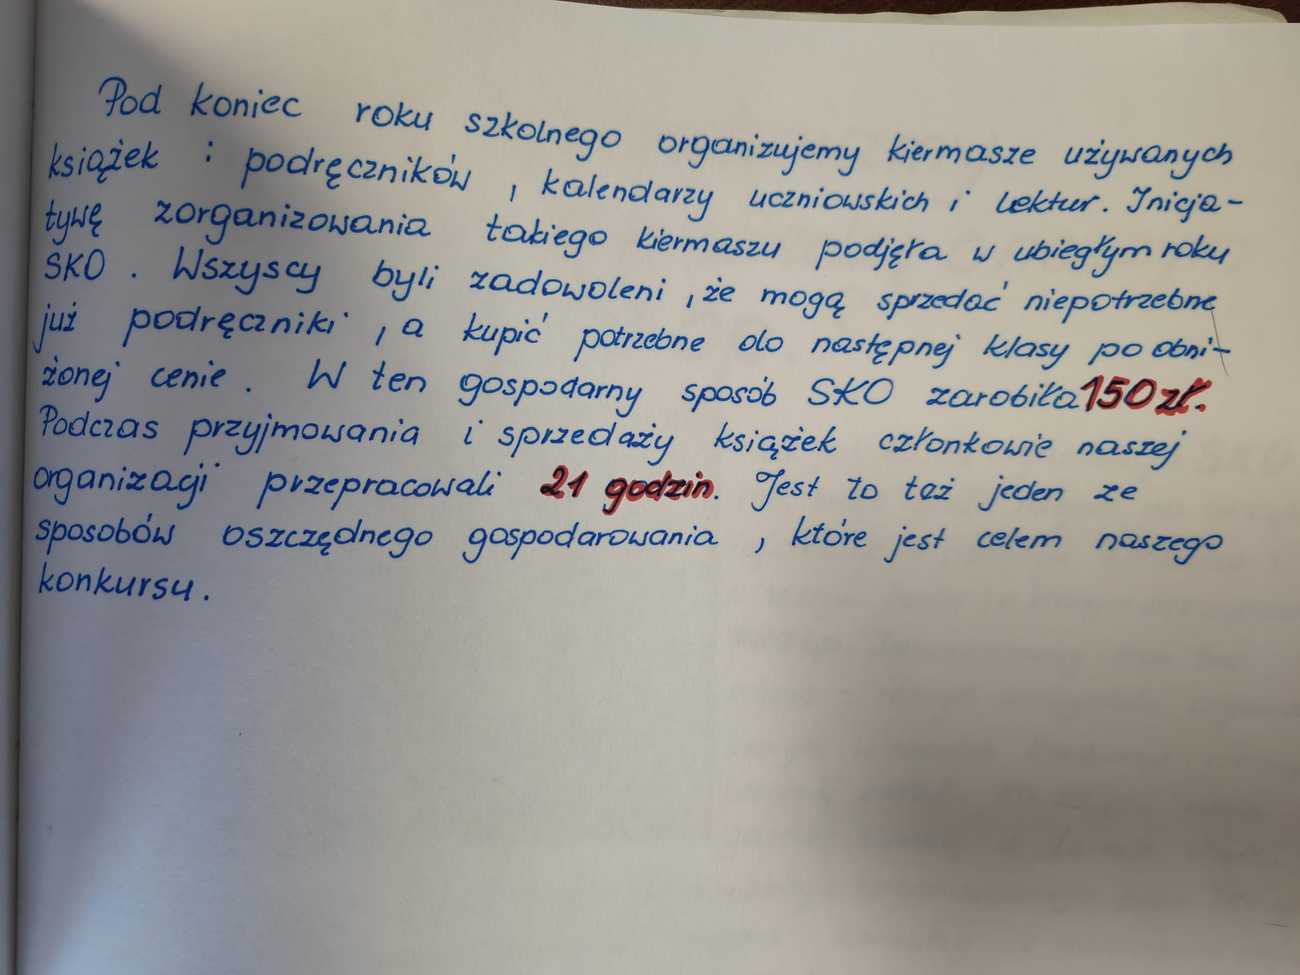 Pod koniec roku szkolnego organizujemy kiermasze używanych
książek i podręczników, kalendarzy uczniowskich i lektur. Inicja-
tywę zorganizowania takiego kiermaszu podjęła w ubiegłym roku
SKO. Wszyscy byli zadowoleni, że mogą sprzedać niepotrzebne
już podręczniki, a kupić potrzebne do następnej klasy po obni-
żonej cenie. W ten gospodarny sposób SKO zarobiła 150 zł.
Podczas przyjmowania i sprzedaży książek członkowie naszej
organizacji przepracowali 21 godzin. Jest to też jeden ze
sposobów oszczędnego gospodarowania, które jest celem naszego
konkursu.